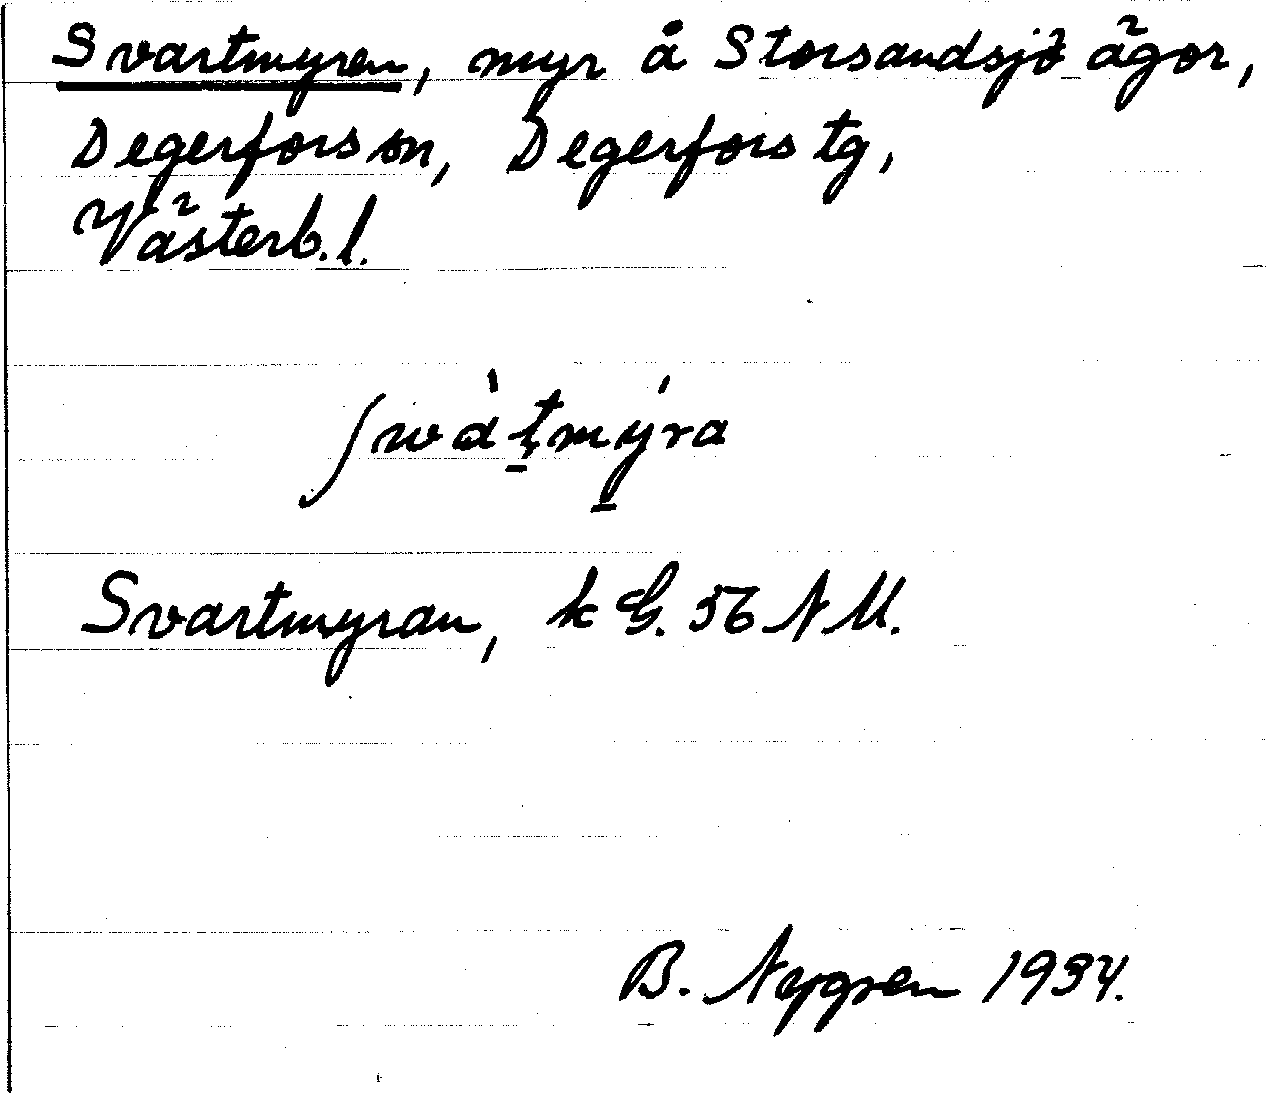 Svartmyren, myr å Storsandsjö ägor,
Degerfors sn, Degerfors tg,
Västerb.l.
ʃwàṭmýra
Svartmyran, k G. 56 N M.
B. Nygren 1934.